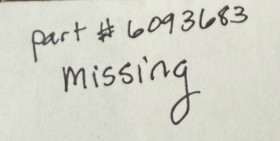 part # 6093683
missing